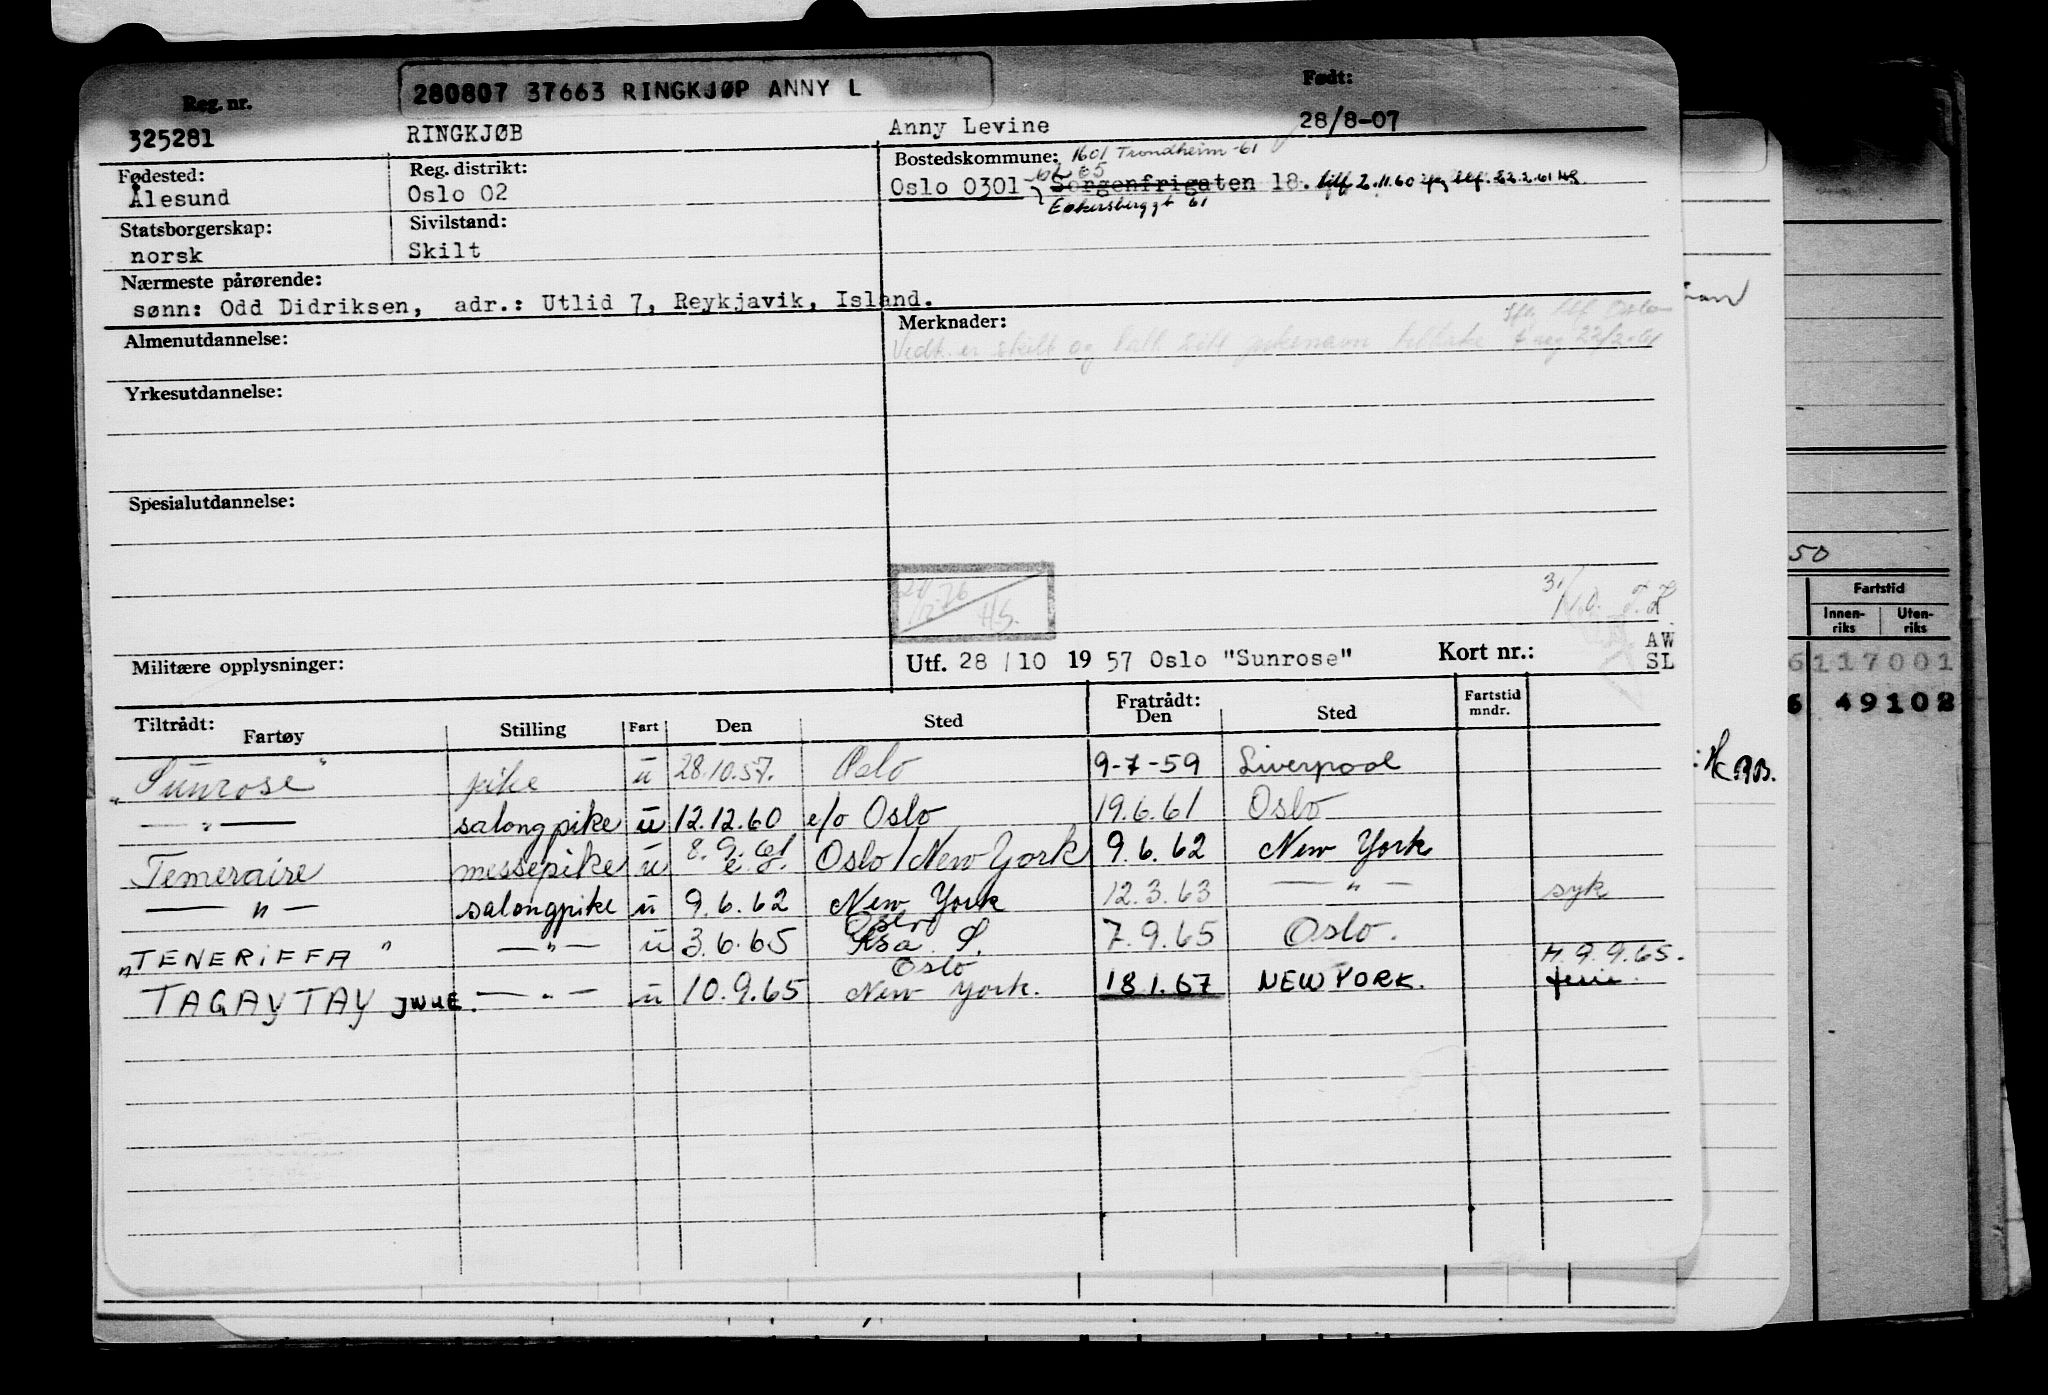 280807 37663 RINGKJØP ANNY L
Reg. nr. Født:
325281 RINGKJØB Anny Levine 28/8-07
Fødested: Reg. distrikt: Bostedskommune: 1601 Trondheim -61
Ålesund Oslo 02 Oslo 0301 Sorgenfrigaten 18. tilf 2.11.60 22.2.61
Ekersberggt 61
Statsborgerskap: Sivilstand:
norsk Skilt
Nærmeste pårørende:
sønn: Odd Didriksen, adr.: Utlid 7, Reykjavik, Island.
Almenutdannelse: Merknader:
Vedk. er skilt og tatt sitt pikenavn tilbake
Yrkesutdannelse:
Spesialutdannelse:
50
Fartstid
Innen-riks Uten-riks
AW
SL
Militære opplysninger: Utf. 28/10 1957 Oslo "Sunrose" Kort nr.:
6 117001
6 49102
Tiltrådt: Fratrådt:
Fartøy Stilling Fart Den Sted Den Sted Fartstid mndr.
"Sunrose" pike u 28.10.57. Oslo 9-7-59 Liverpool
— " — salongpike u 12.12.60 e/o Oslo 19.6.61 Oslo
Temeraire messepike u 8.9.61 Oslo/New York 9.6.62 New York
— " — salongpike u 9.6.62 New York 12.3.63 — " — syk
"TENERIFFA" — " — u 3.6.65 Oslo 7.9.65 Oslo. 9.9.65.
TAGAYTAY — " — u 10.9.65 Oslo New York. 18.1.67 NEW YORK. ferie.